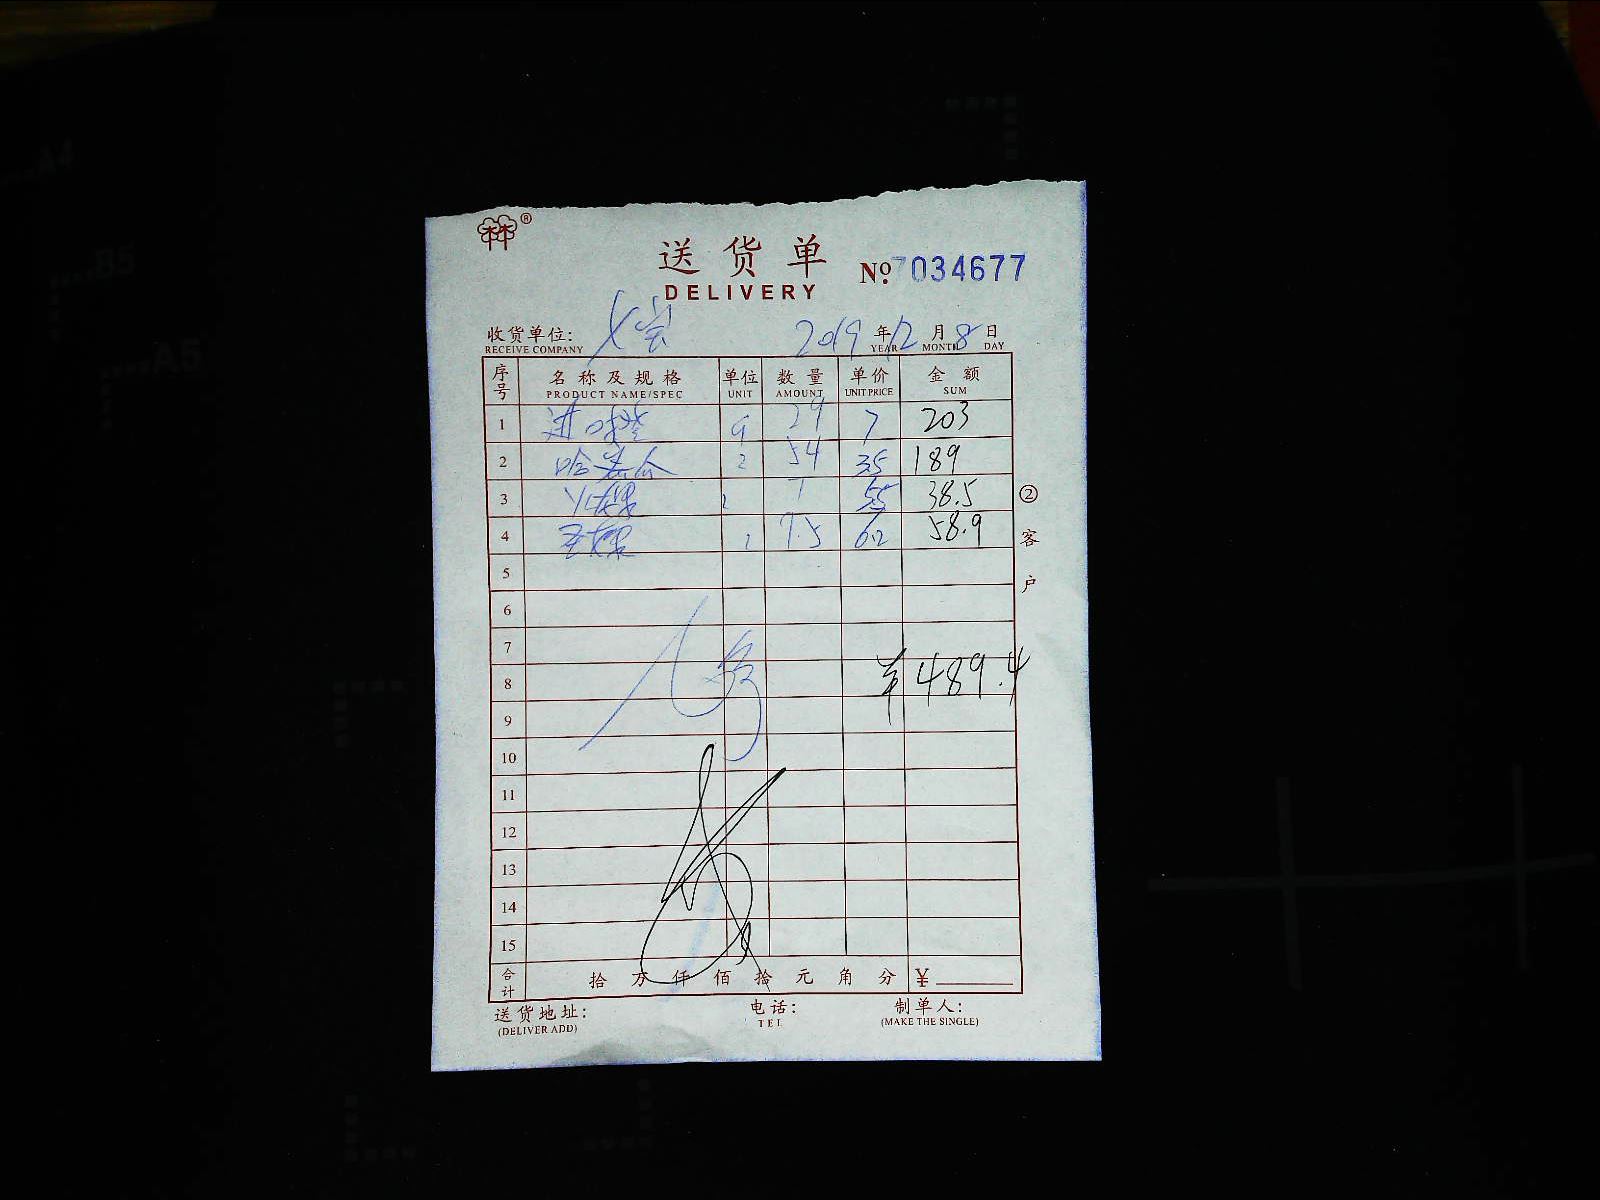 A4
B5
A5
林®
送货单
DELIVERY
№ 7034677
收货单位:
RECEIVE COMPANY
2019 年 12 月 8 日
YEAR MONTH DAY
序号 名称及规格 单位 数量 单价 金额
PRODUCT NAME/SPEC UNIT AMOUNT UNIT PRICE SUM
1 进口 29 7 203
2 哈 2 54 35 189
3 38.5
4 7.5 6.2 58.9
5
6
7
8 ¥489.4
9
10
11
12
13
14
15
合计 拾万仟佰拾元角分 ¥
② 客户
送货地址: 电话: 制单人:
(DELIVER ADD) TEL (MAKE THE SINGLE)